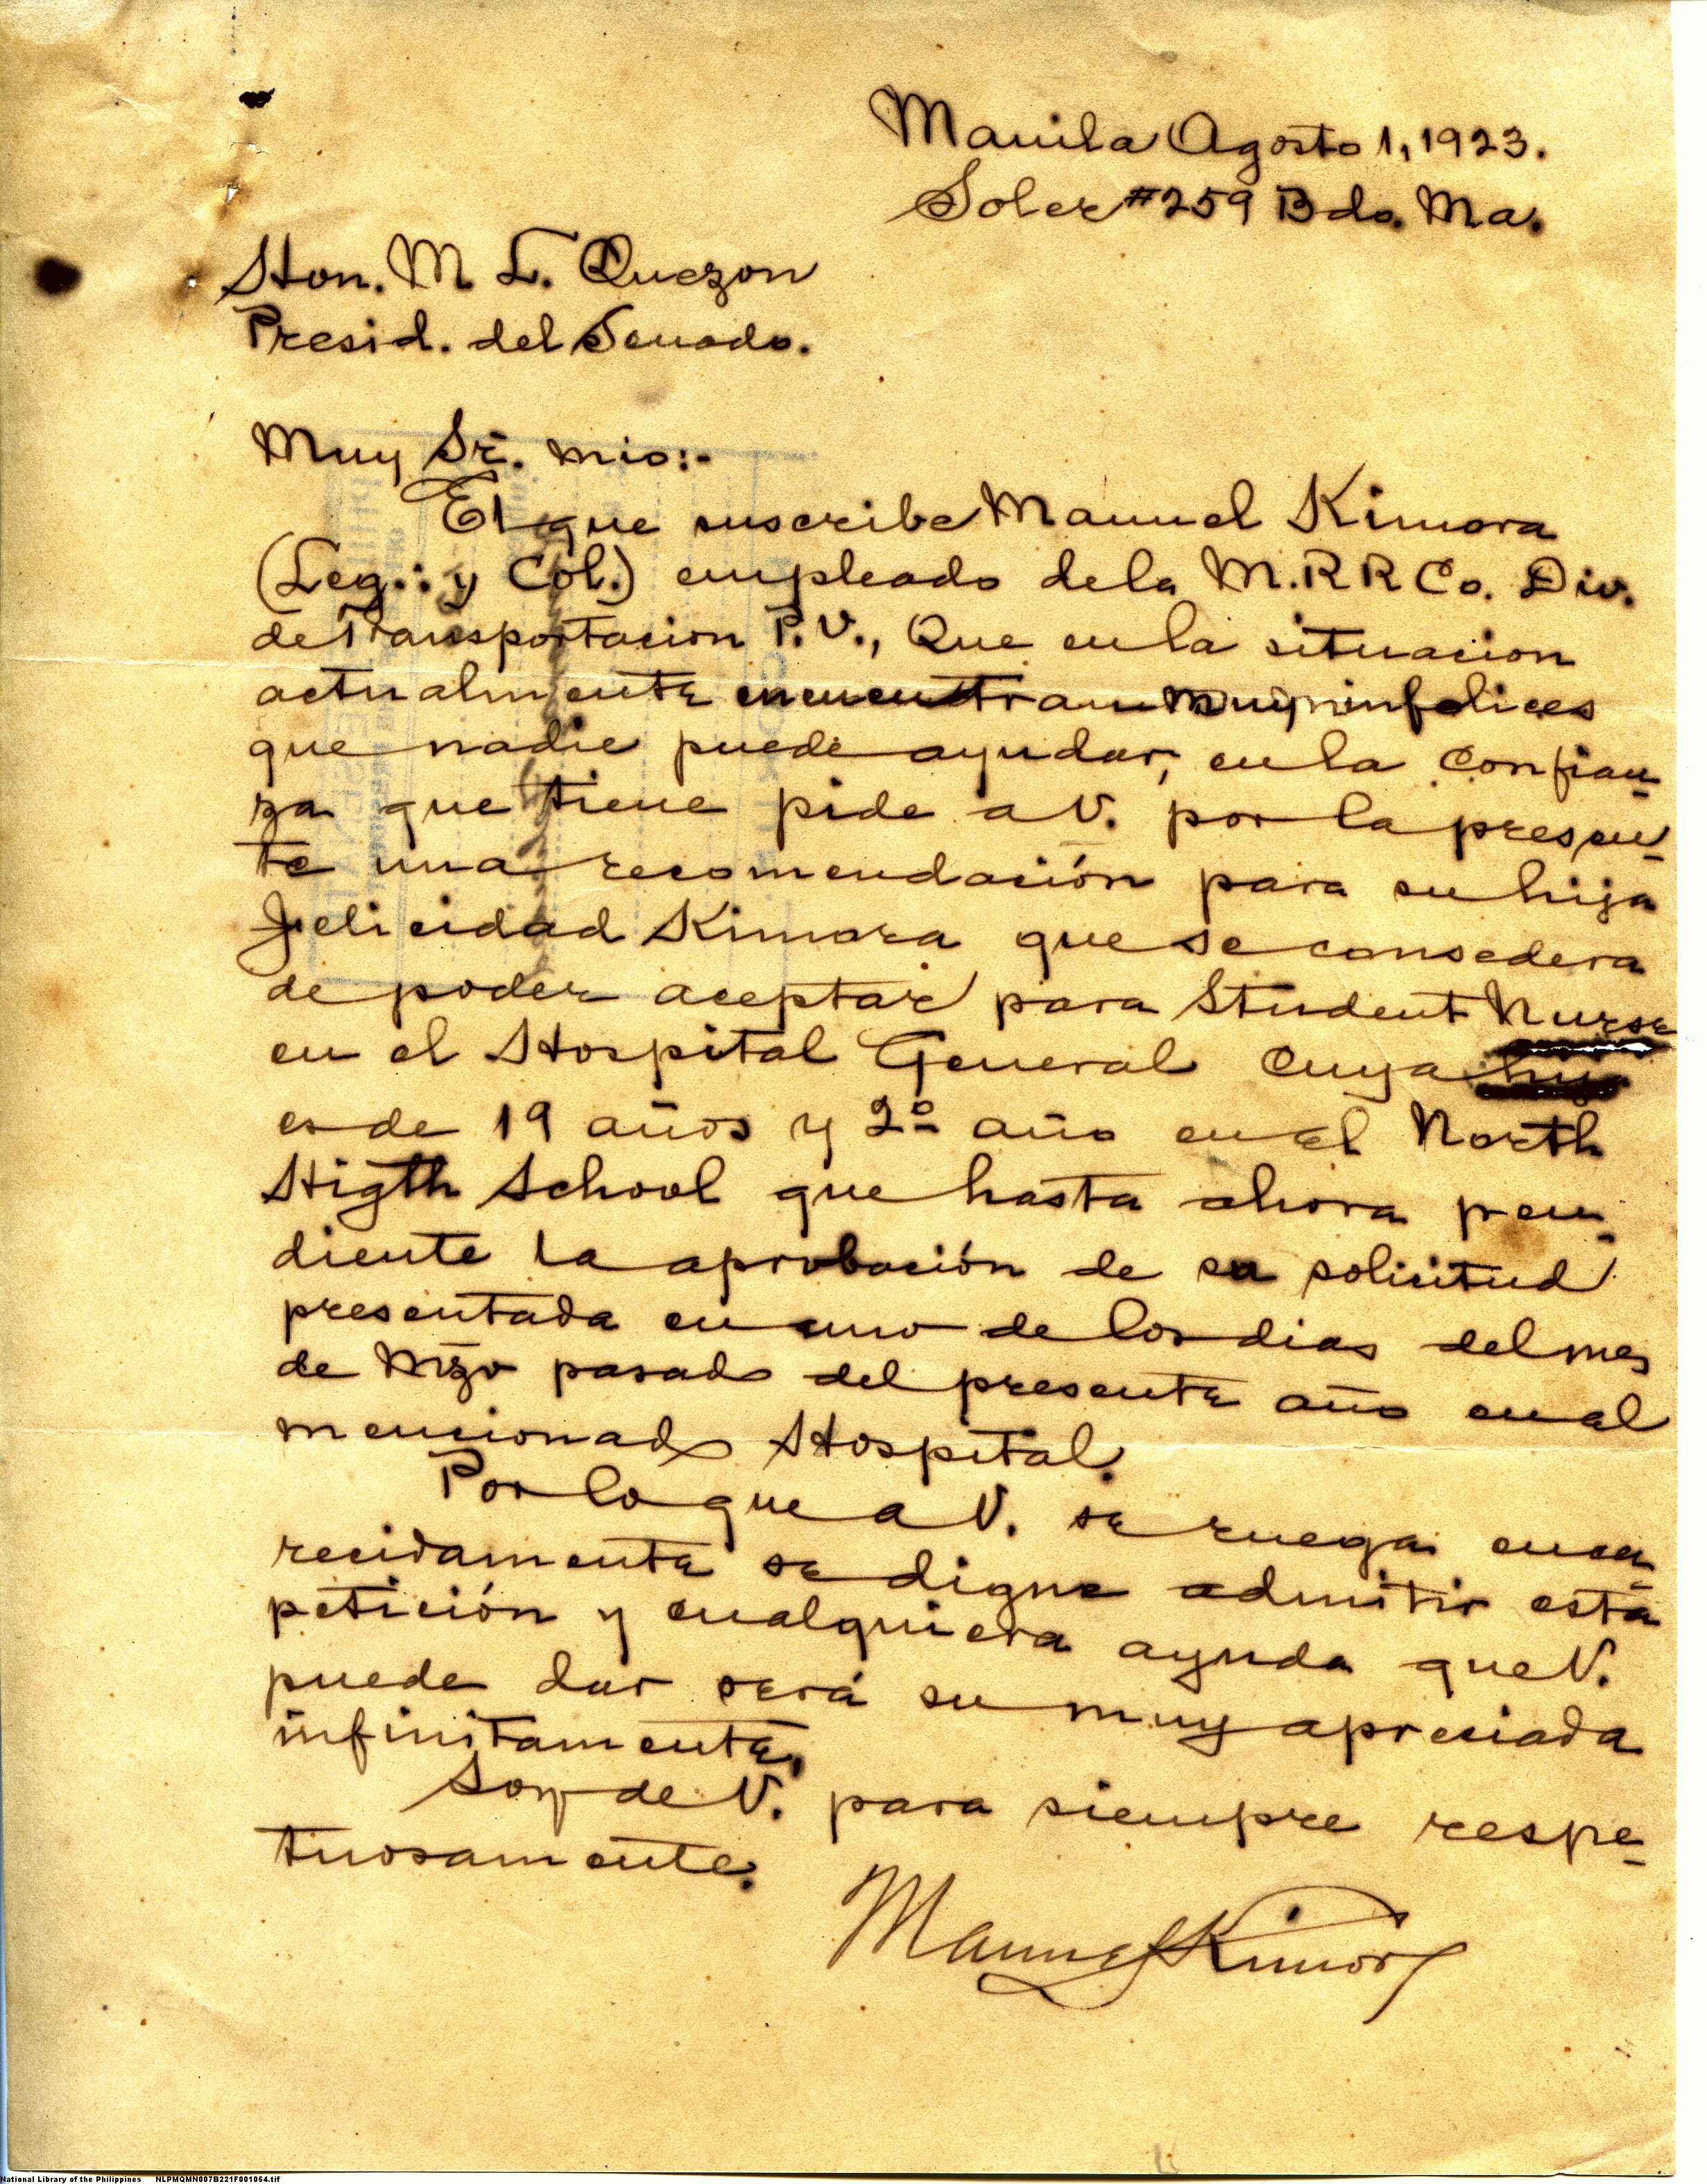 Manila Agosto 1, 1923.
Soler #259 Bdo. Ma.
Hon. M. L. Quezon
Presid. del Senado.
Muy Sr. mio:-
El que suscribe Manuel Kimora
(Leg.: y Col.) empleado de la M.R R Co. Div.
de Transportacion P.V., Que en la situacion
actualmente encuentran muy infelices
que nadie puede ayudar, en la confian-
za que tiene pide a V. por la presen-
te una recomendación para su hija
Felicidad Kimora que se consedera
de poder aceptar para Student Nurse
en el Hospital General cuya
es de 19 años y 2º año en el North
Higth School que hasta ahora pen-
diente la aprobación de su solicitud
presentada en uno de los dias del mes
de Mzo pasado del presente año en al
mencionado Hospital.
Por lo que a V. se ruega enca-
recidamente se digne admitir esta
petición y cualquiera ayuda que V.
puede dar será su muy apreciada
infinitamente.
Soy de V. para siempre respe-
tuosamente.
Manuel Kimora
National Library of the Philippines NLPMQMN007B221F001054.tif